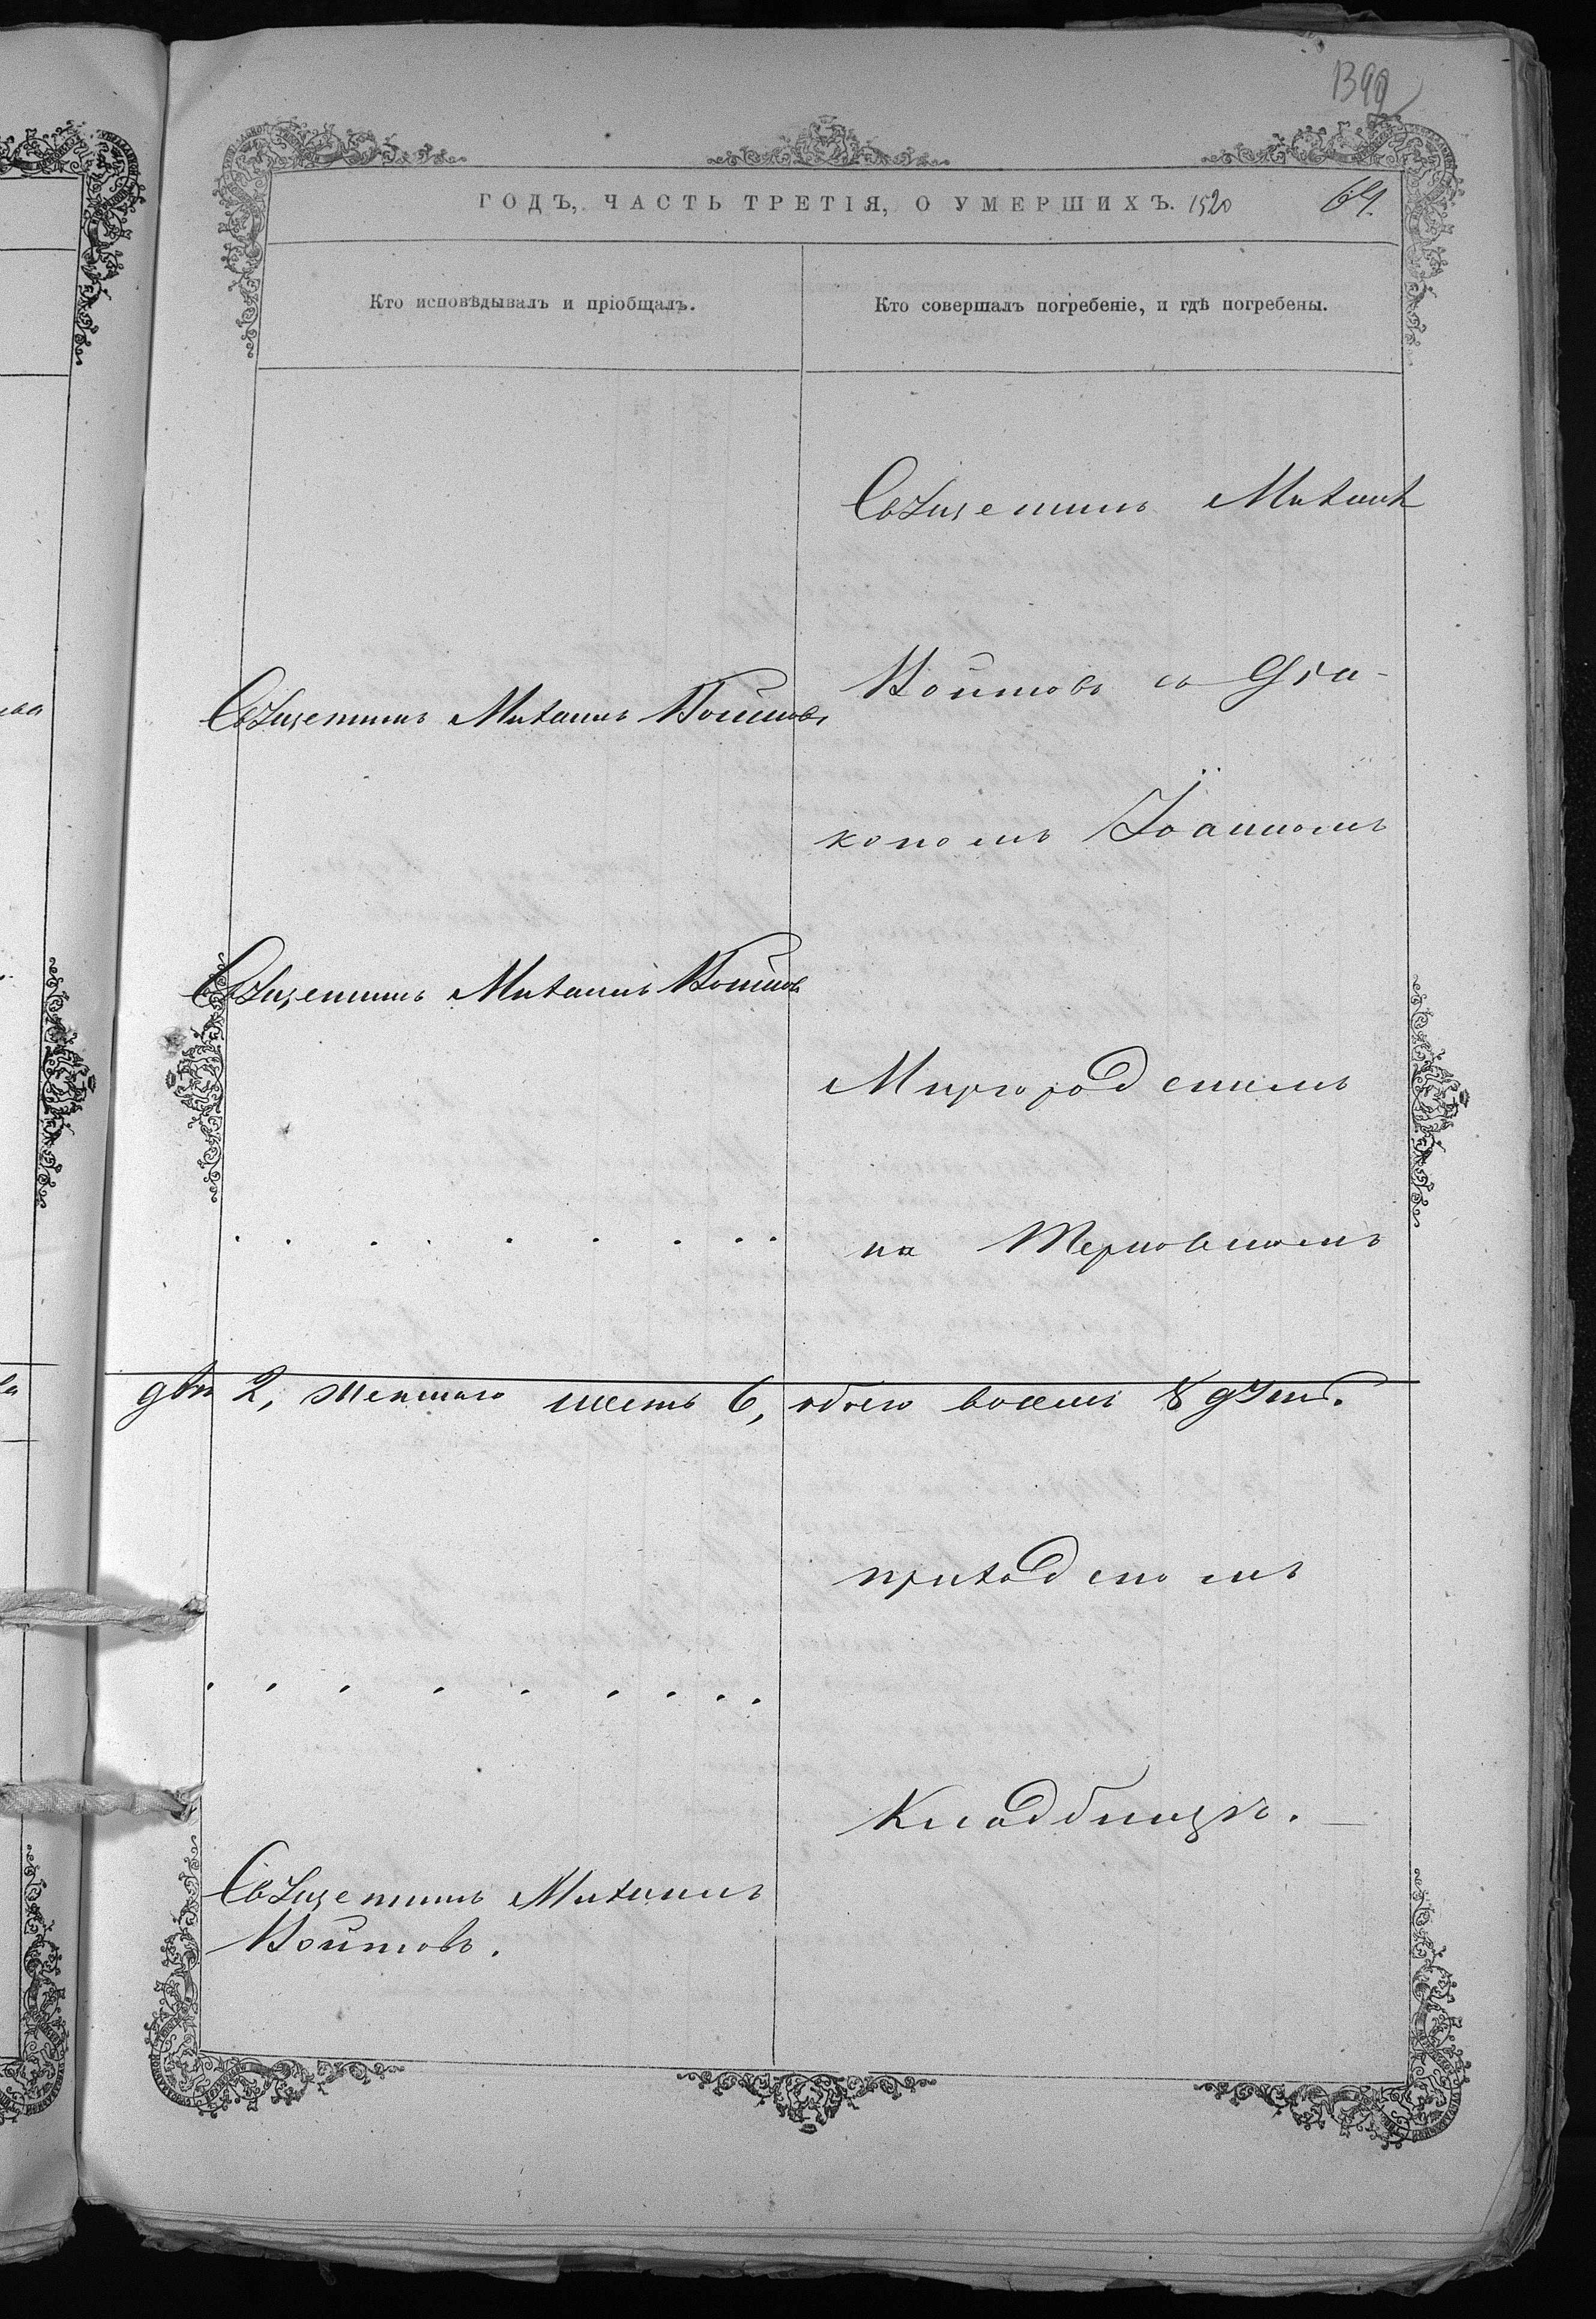 1399
ГОДЪ, ЧАСТЬ ТРЕТІЯ, О УМЕРШИХЪ. 1520
64.
Кто исповѣдывалъ и пріобщалъ.
Кто совершалъ погребеніе, и гдѣ погребены.
Священникъ Михаилъ
Войтовъ съ Діа-
Священникъ Михаилъ Войтовъ
кономъ Іоанномъ
Священникъ Михаилъ Войтовъ
Миргородскимъ
на Терновскомъ
2, женскаго шесть 6, обоего восемь 8 душъ.
приходскомъ
Кладбищѣ.
Священникъ Михаилъ
Войтовъ.